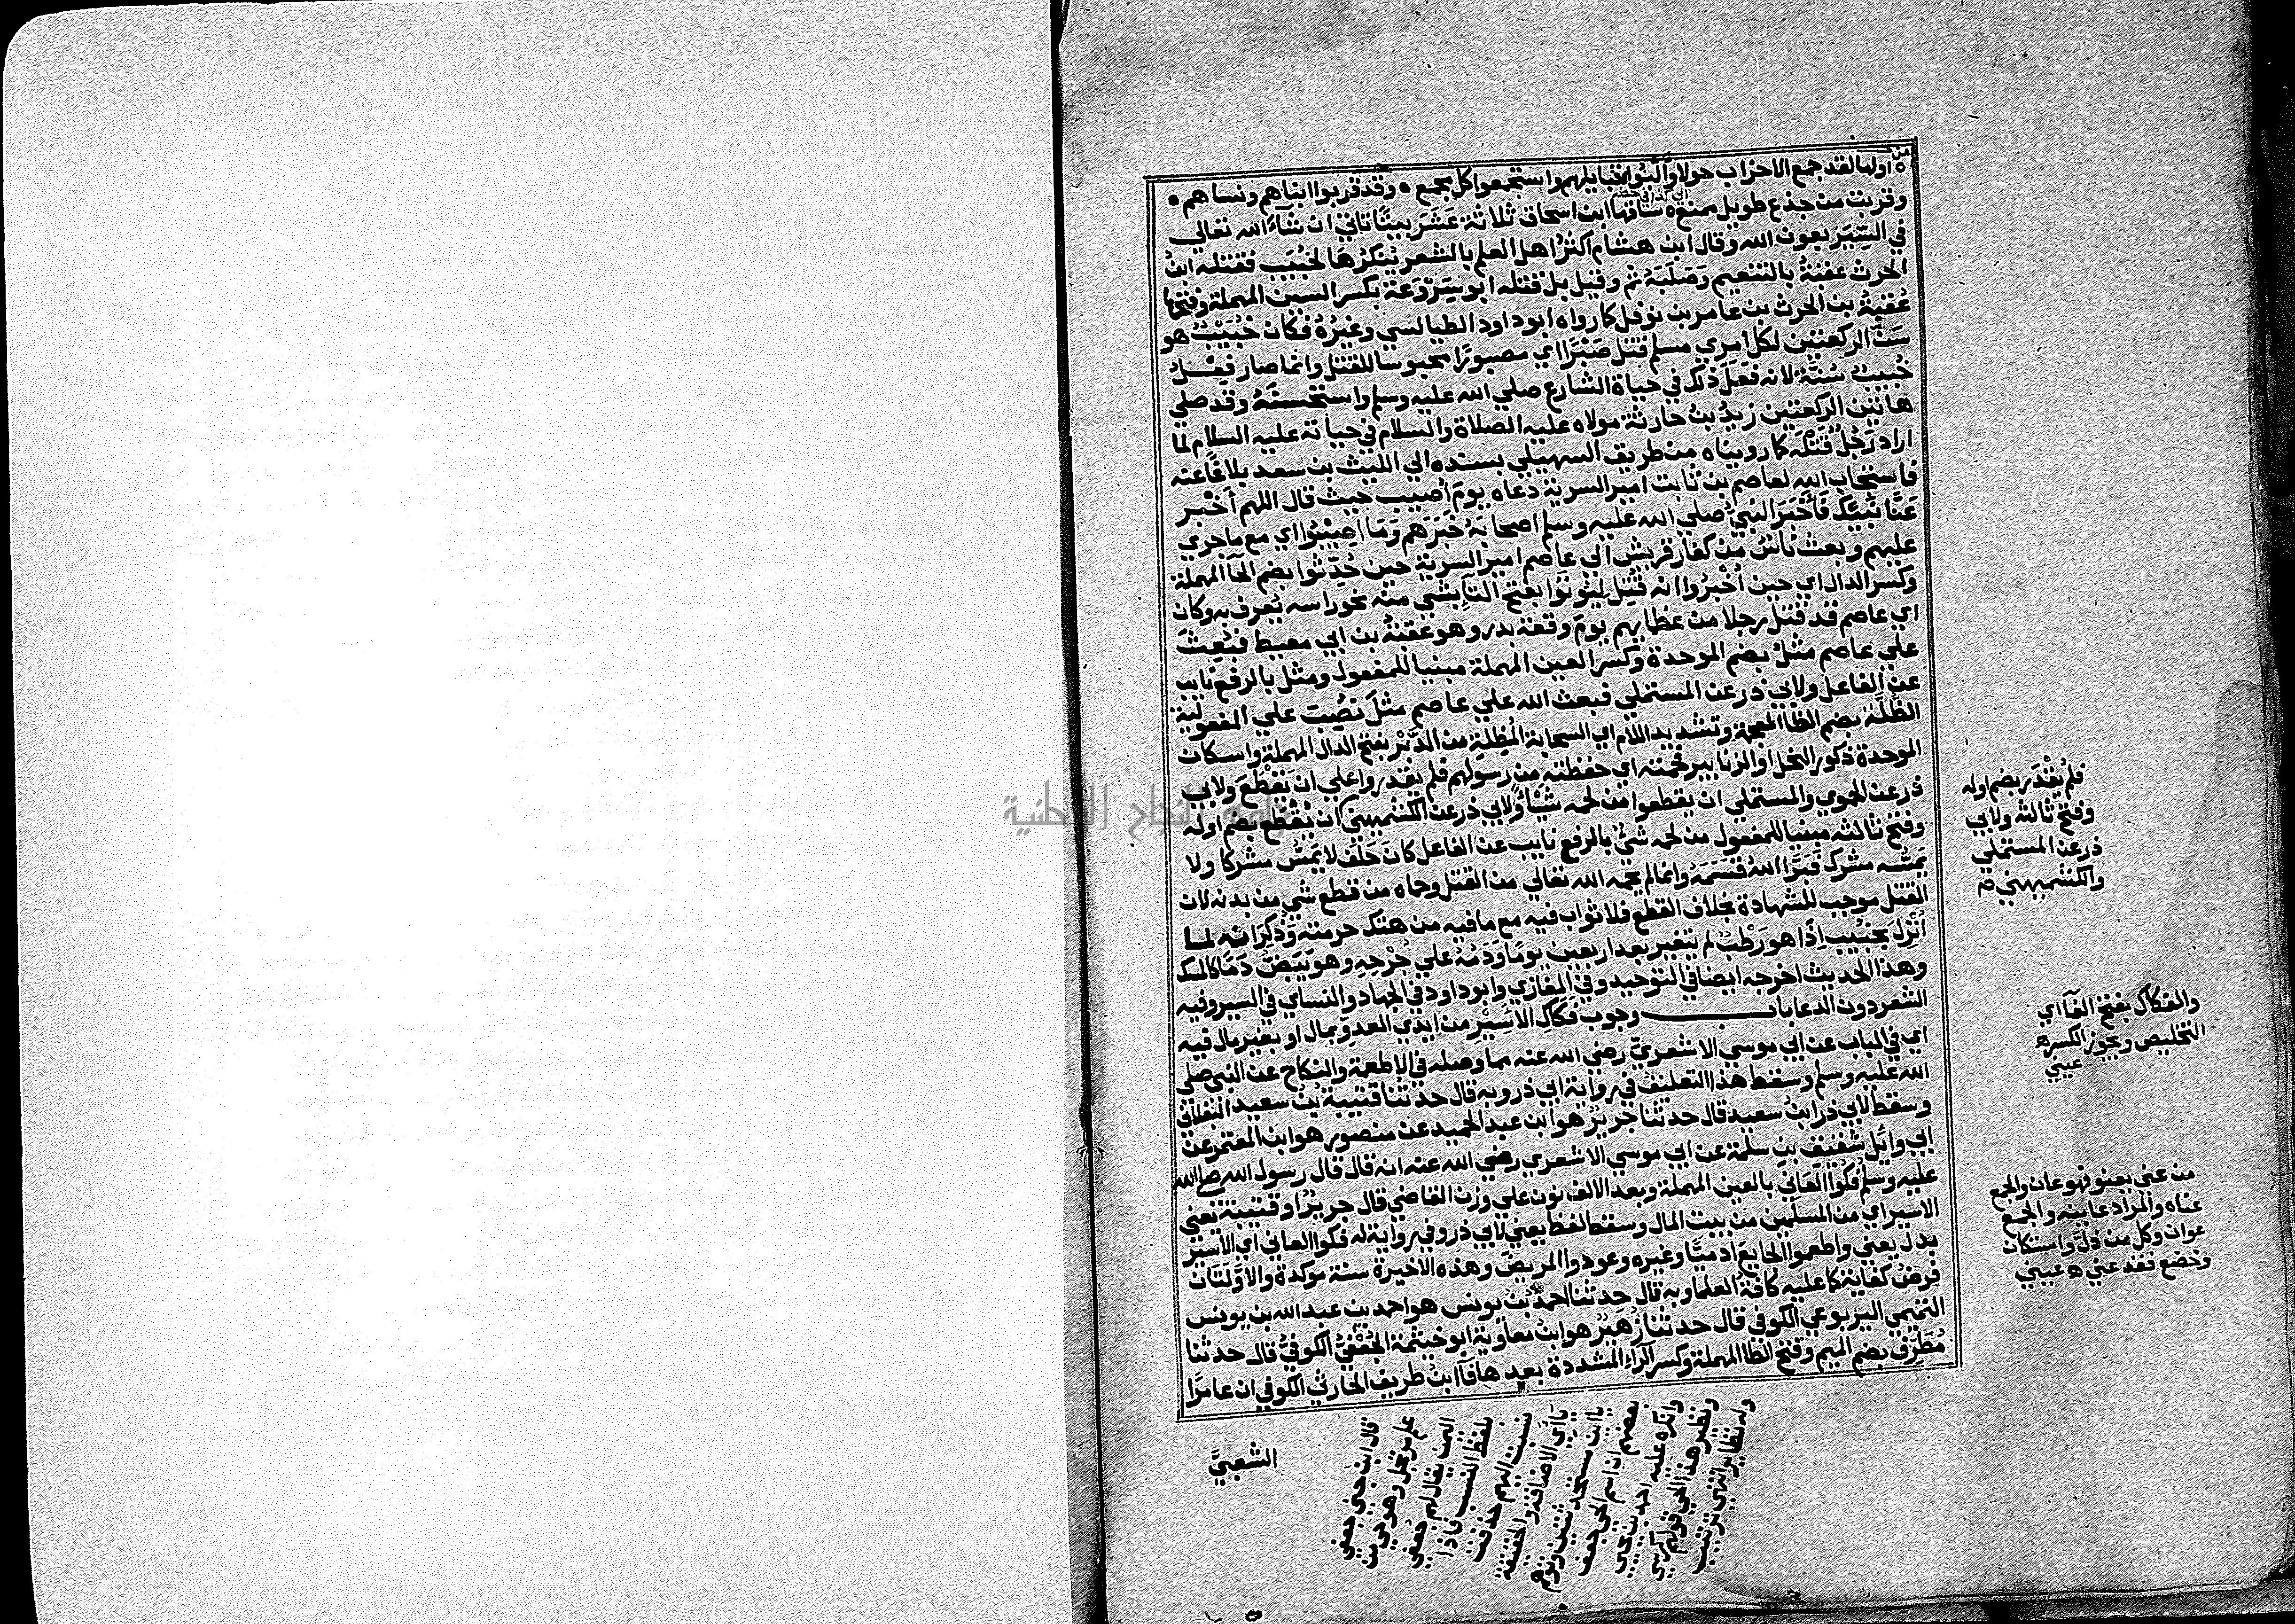 اولها لقد جمع الاحزاب حولي والبوا قبايلهم واستجمعوا كل مجمع ه وقد قربوا ابناهم ونساهم ه
وقربت من جذع طويل ممنع ه ساقها ابن اسحاق ثلاثة عَشَرَ بيتًا تاتي ان شآء الله تعالي
في السِّيَر بعون الله وقال ابن هشام اكثر اهل العلم بالشعر يُنكرُهَا لخُبَيَب فقتله ابنُ
الحرث عقبةُ بالتنعيم وَصَلَبَهُ ثم وقيل بل قتله ابو سِرْوَعة بكسر السين المهملة وفتحها
عُقبةُ بن الحرث بن عامر بن نوفل كما رواه ابو داود الطيالسي وغيرُهُ فكان خُبَيْبٌ هو
سَنَّ الركعتين لكل امري مسلم قتل صَبْرًا اي مصبورًا محبوسا للقتل وانما صار فِعْلُ
خُبيبٍ سُنَّةً لانه فَعَلَ ذلك في حياة الشارع صلي الله عليه وسلم واستحسنَهُ وقد صلي
هاتين الركعتين زيدُ بنُ حارثة مولاه عليه الصلاة والسلام في حياته عليه السلام لما
اراد رَجُلٌ قَتْلَهُ كما رويناه من طريق السهيلي بسنده الي الليث بن سعد بلاغًا عنه
فاستجاب الله لعاصم بن ثابت امير السرية دعاه يومَ اُصيب حيث قال اللهم أَخْبِر
عَنَّا نَبِيَّكَ فَأَخْبَرَ النبيُّ صلي الله عليه وسلم اصحابَهُ خَبَرَهم وَمَا أُصِيْبُوا اي مع ما جري
عليهم وبعث ناسٌ من كفار قريش الي عاصم امير السرية حين حُدِّثوا بضم الحا المهملة
وكسر الدال اي حين أُخْبرُوا انه قُتِلَ لِيُؤتَوْا بفتح التآ بشي منه نحو راسه يُعرف به وكان
اي عاصم قد قتل رجلا من عظمايهم يومَ وقعة بدر وهو عقبةُ بن ابي معيط فبُعِثَ
علي عاصم مثلُ بضم الموحدة وكسر العين المهملة مبنيا للمفعول ومثل بالرفع نايب
عن الفاعل ولابي ذر عن المستملي فبعث الله علي عاصم مثلَ نُصِبَ علي المفعولية
الظُّلَّة بضم الظا المعجمة وتشديد اللام اي السحابة المُظِلة من الدَّبْر بفتح الدال المهملة واسكان
الموحدة ذكور النحل او الزنابير فحمته اي حفظته من رسولهم فلم يقدروا علي ان تقْطَعَ ولابي
ذر عن الحموي والمستملي ان يقطعوا من لحمه شيًا ولابي ذر عن الكشميهني ان يُقْطَعَ بضم اوله
وفتح ثالثه مبنيا للمفعول من لحمه شيٌ بالرفع نايب عن الفاعل كانَ حَلَفَ لا يَمَسُّ مشركا ولا
يَمَسُّه مشرك فبَرَّا اللهُ قَسَمَهُ وانما لم يحمه الله تعالي من القتل وحماه من قطع شي من بدنه لان
القتل موجب للشهادة بخلاف القطع فلا ثواب فيه مع ما فيه من هتك حرمته وَذُكِرَ انه لما
أُنْزِلَ خُبَيْب اذا هو رَطْبٌ لم يتغير بعد اربعين يومًا وَدَمُهُ علي جُرْحِهِ وهو يَبِضُّ دَمًا كالمسك
وهذا الحديث اخرجه ايضا في التوحيد وفي المغازي وابو داود في الجهاد والنساي في السير وفيه
الشعر دون الدعا باب وجوب فَكَاكِ الاَسِيْرِ من ايدي العدوّ بمال او بغير مال فيه
اي في الباب عن ابي موسي الاشعريّ رضي الله عنه مما وصله في الاطعمة والنكاح عن النبي صلي
الله عليه وسلم وسقط هذا التعليق في رواية ابي ذر وبه قال حدثنا قتيبةُ بنُ سعيد الثقفي
وسقط لابي ذر ابنُ سعيد قال حدثنا جريرٌ هو ابن عبد الحميد عن منصور هو ابن المعتمر عن
ابي وايل شقيق بن سلمة عن ابي موسي الاشعري رضي الله عنه انه قال قال رسول الله صلي الله
عليه وسلم فُكُّوا العَانِيَ بالعين المهملة وبعد الالف نون علي وزن القاضي قال جريرٌ او قتيبة يعني
الاسير اي من المسلمين من بيت المال وسقط لفظ يعني لابي ذر وفي رواية له فكوا العاني اي الاسير
بدل يعني واطعموا الجايعَ ادميًّا وغيره وعودوا المريضَ وهذه الاخيرة سنة موكدة والاوَّلَتَان
فرضُ كفاية كما عليه كافةُ العلما وبه قال حدثنا احمدُ بنُ يونس هو احمد بن عبد الله بن يونس
التميمي اليربوعي الكوفي قال حدثنا زُهَيْرٌ هو ابنُ معاوية ابو خيثمة الجُعْفِيُّ الكوفيُّ قال حدثنا
مُطَرِّف بضم الميم وفتح الطا المهملة وكسر الرآء المشددة بعدها فَآ ابنُ طريف الحارثي الكوفي ان عامرًا
فلم يُقْدَر بضم اوله
وفتح ثالثه ولابي
ذر عن المستملي
والكشميهني
والفكاك بفتح الفآ اي
التخليص ويجوز الكسر ه
عيني
من عني يعنو فهو عان والجمع
عناه والمراد عانيه والجمع
عوان وكل من ذلَّ واستكان
وخضع فقد عني ه عيني
قال ابن جني جعفي
علم مرتجل وهو حي من
اليمن يقال لهم جُعْفي
بلفظ النسب فاذا
نسبت اليهم حذفت
يآءَي الاضافة
بعضهم ان اسم الحي جعف
وانكره عليه احمد بن يحيي
ونظير هذا الحي قولهم كرسي
الشعبيَّ
جامعة النجاح الوطنية